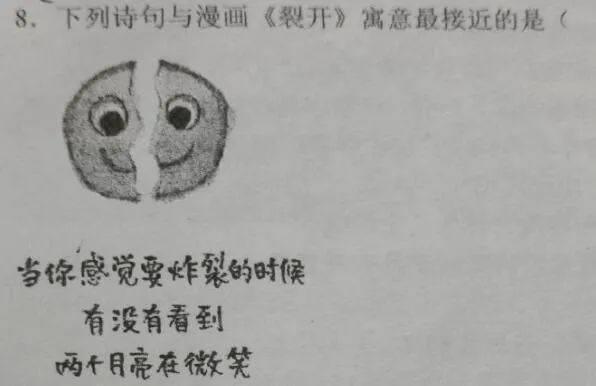 8. 下列诗句与漫画《裂开》寓意最接近的是（
当你感觉要炸裂的时候
有没有看到
两个月亮在微笑